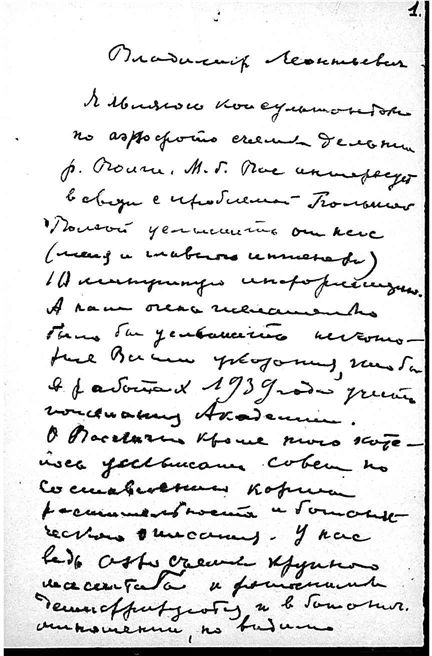 1.
Владимир Леонтьевич
Я являюсь консультантом
по аэрофото съемке дельты
р. Волги. М. б. Вас интересует
в связи с проблемой Большой
Волги услышать от нас
(меня и главного инженера)
10 минутную информацию.
А нам очень желательно
было бы услышать некото-
рые Ваши указания, чтобы
в работах 1939 года учесть
пожелания Академии.
О Вас лично кроме того хоте-
лось услышать совет по
составлению карты
растительности и ботани-
ческого описания. У нас
ведь аэро съемка крупного
масштаба и фотоснимки
дешифрируются и в ботанич.
отношении, но видимо